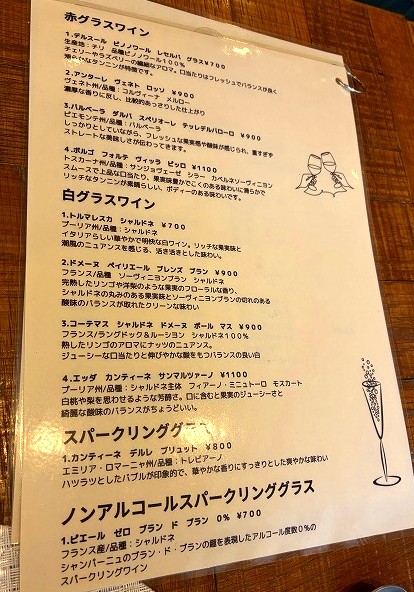 赤グラスワイン
1.デルスール ピノノワール レセルバ グラス¥700
生産地:チリ 品種ピノノワール100%
チェリーやラズベリーの繊細なアロマ。口当たりはフレッシュでバランスが良く
滑らかなタンニンが特徴です。
2.アンターレ ヴェネト ロッソ ¥900
ヴェネト州/品種:コルヴィーナ メルロー
濃厚な香りに反し、比較的あっさりした仕上がり
3.バルベーラ ダルバ スペリオーレ テッレデルバローロ ¥900
ピエモンテ州/品種:バルベーラ
しっかりとしていながら、フレッシュな果実感や酸味が感じられ、重すぎず
ストレートな美味しさが伝わってきます。
4.ボルゴ フォルテ ヴィッラ ピッロ ¥1100
トスカーナ州/品種:サンジョヴェーゼ シラー カベルネソーヴィニヨン
スムースで上品な口当たり、果実味豊かでこくのある味わいに滑らかで
リッチなタンニンが素晴らしい、ボディーのある味わいです。
白グラスワイン
1.トルマレスカ シャルドネ ¥700
プーリア州/品種:シャルドネ
イタリアらしい華やかで明快な白ワイン。リッチな果実味と
潮風のニュアンスを感じる、活き活きとした味わい。
2.ドメーヌ ペイリエール ブレンズ ブラン ¥900
フランス/品種 ソーヴィニヨンブラン シャルドネ
完熟したリンゴや洋梨のような果実のフローラルな香り、
シャルドネの丸みのある果実味とソーヴィニヨンブランの切れのある
酸味のバランスが取れたクリーンな味わい
3.コーテマス シャルドネ ドメーヌ ポール マス ¥900
フランス/ラングドック&ルーション シャルドネ100%
熟したリンゴのアロマにナッツのニュアンス。
ジューシーな口当たりと伸びやかな酸をもつバランスの良い白
4.エッダ カンティーネ サンマルツァーノ ¥1100
プーリア州/品種:シャルドネ主体 フィアーノ・ミニュトーロ モスカート
白桃や梨を思わせるような芳醇さ。口に含むと果実のジューシーさと
綺麗な酸味のバランスがちょうどいい。
スパークリンググラス
1.カンティーネ デルレ ブリュット ¥800
エミリア・ロマーニャ州/品種:トレビアーノ
ハツラツとしたバブルが印象的で、華やかな香りにすっきりとした爽やかな味わい
ノンアルコールスパークリンググラス
1.ピエール ゼロ ブラン ド ブラン 0% ¥700
フランス産/品種:シャルドネ
シャンパーニュのブラン・ド・ブランの趣を表現したアルコール度数0%の
スパークリングワイン